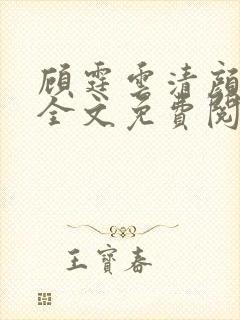 顾霆雲清顔
全文免費閱
王寶春